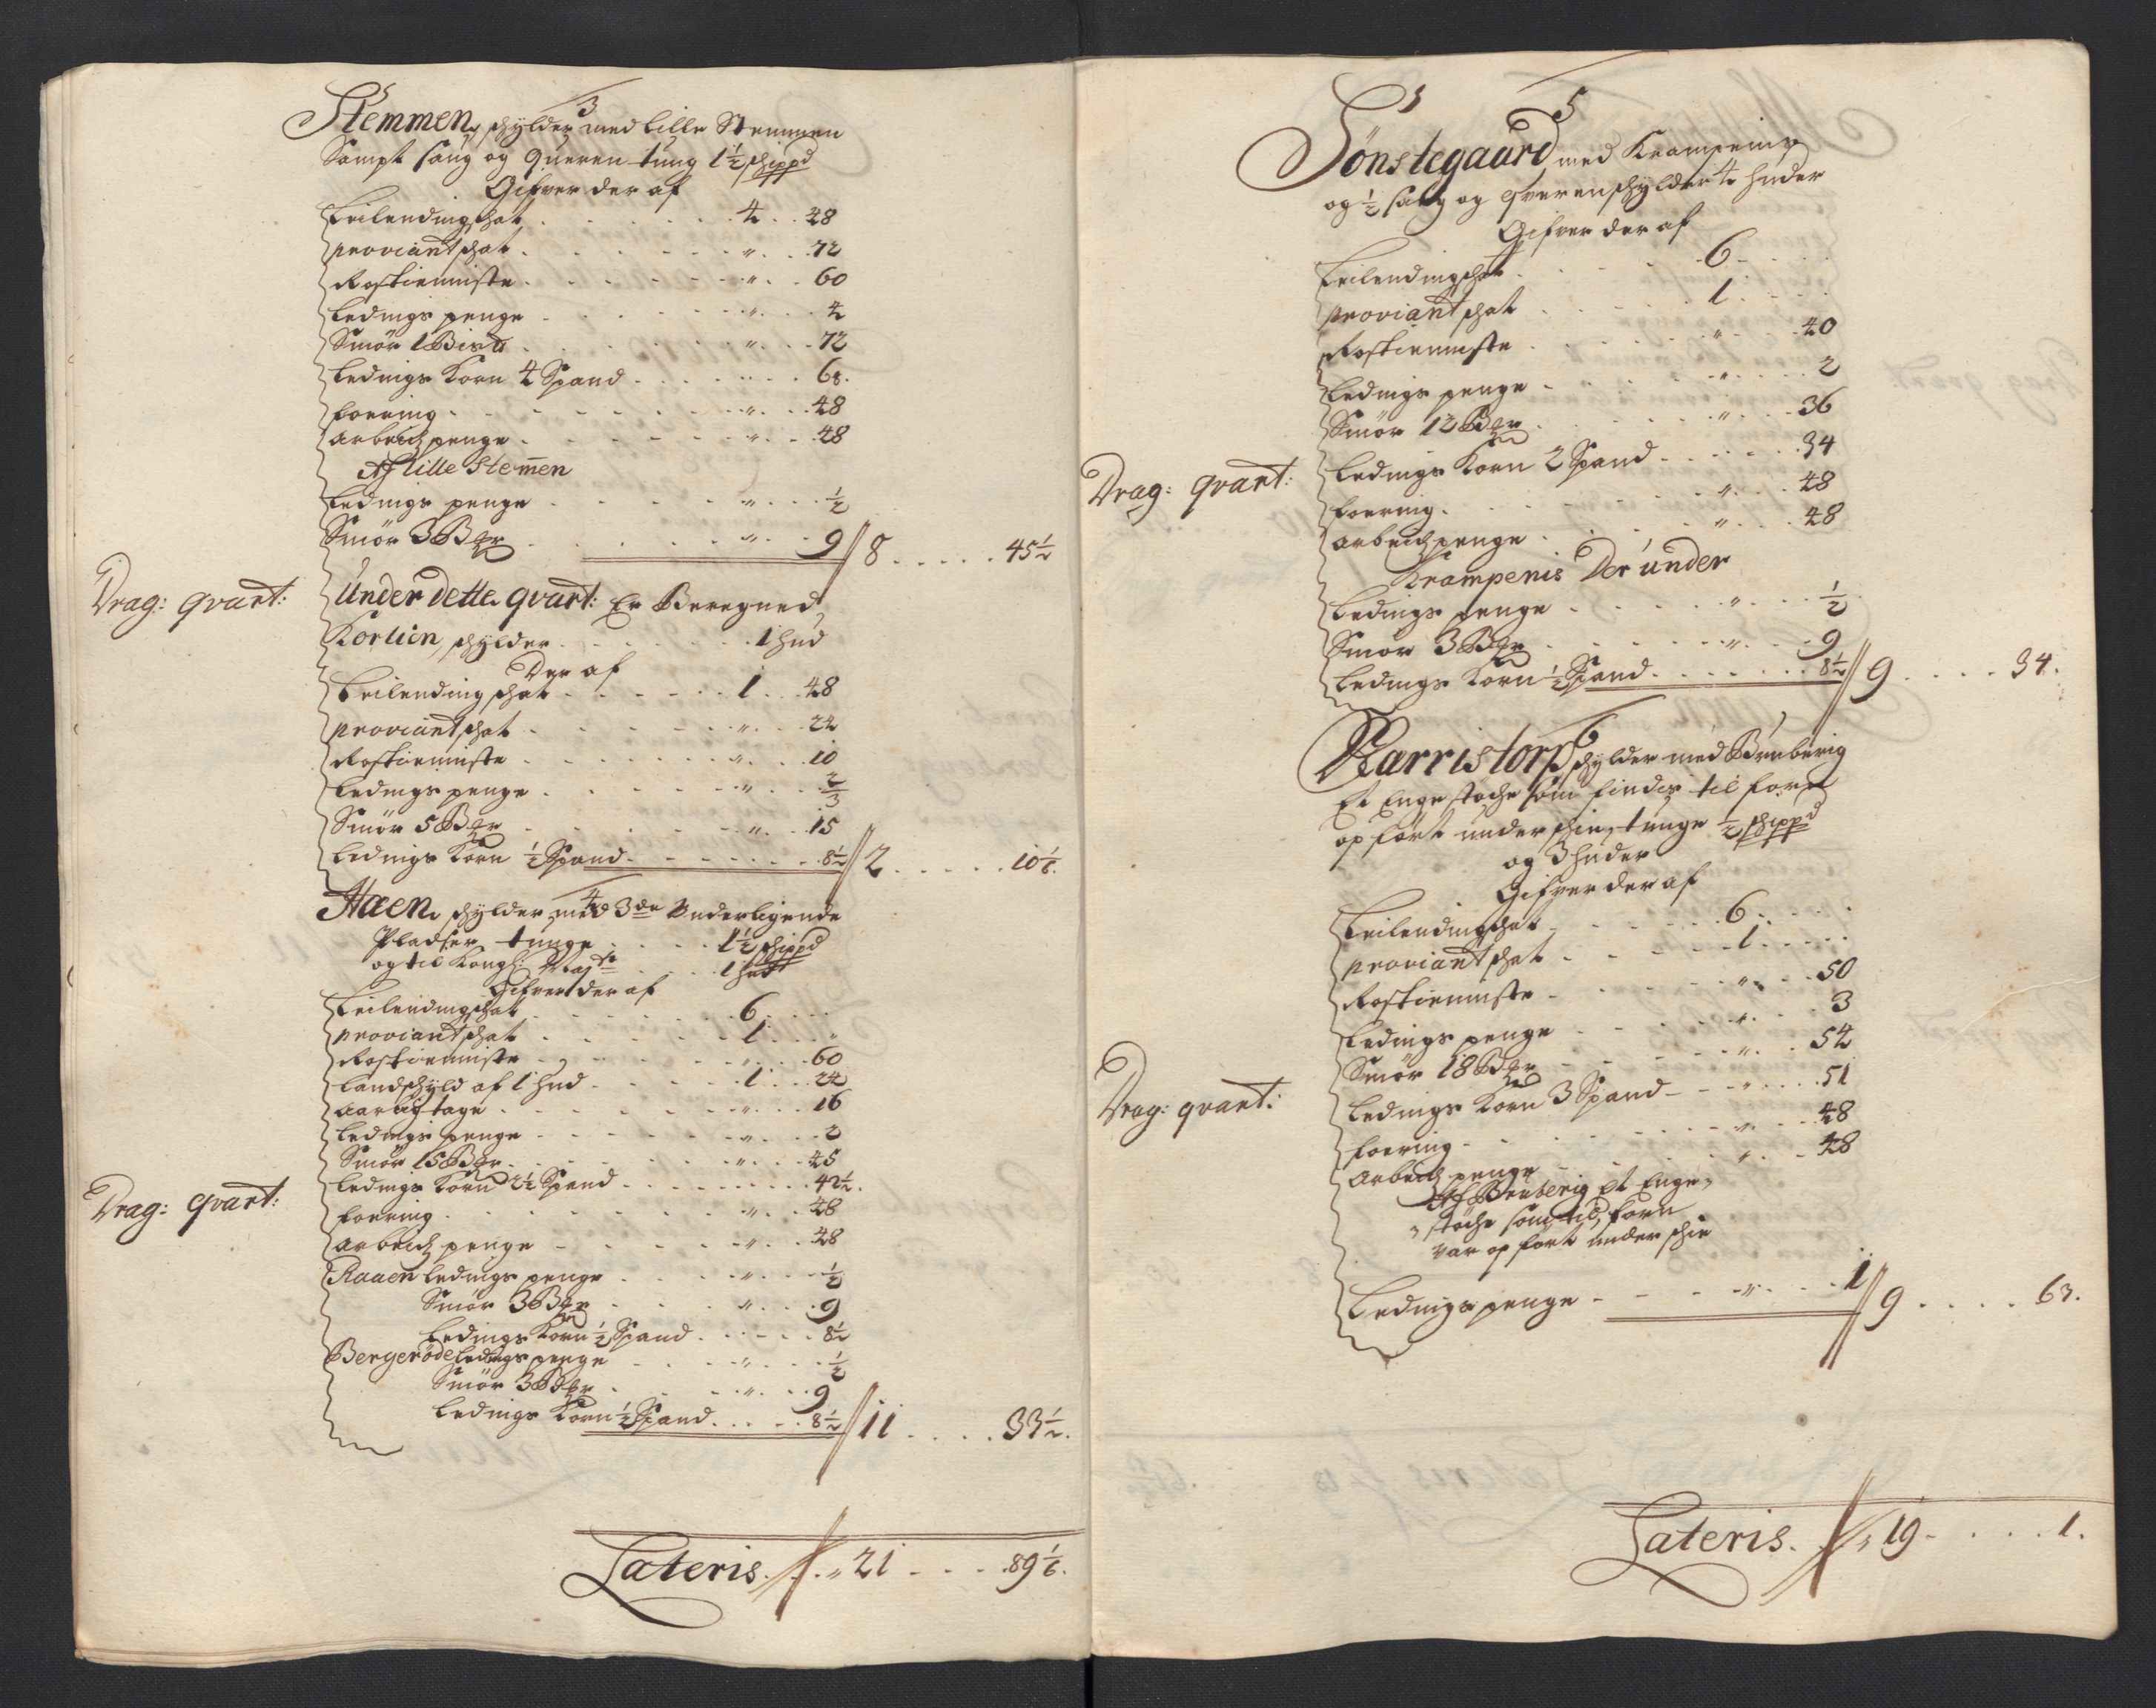 3
Stemmen, schylder med lille Stemmen
Sampt saug og Queren tung 1½ schippd
Gifver der af
Leilendingschat . . . 4 . . 48
proviantschat . . . „ . . 72
Rostienniste . . . „ . . 60
Ledings penge . . . „ . . 4
Smör 1 Bisd . . . „ . . 72
Ledings Korn 4 Spand . . . 68.
foering . . . „ . . 48
arbeidspenge . . . „ . . 48
Af lille Stemen
Ledings penge . . . „ . . ½
Smör 3 Bdr . . . „ . . 9 // 8 . . . . . 45½
Drag: qvart:
Under dette qvart: Er Beregned
Kortien, schylder . . . 1 hud
Der af
Leilendingschat . . . 1 . . 48
proviantschat . . . „ . . 24
Rostienniste . . . „ . . 10
Ledings penge . . . „ . . ⅔
Smör 5 Bdr . . . „ . . 15
Ledings Korn ½ Spand . . . 8½ // 2 . . . . . 10⅙.
4
Haen, schylder med 3de Underligende
Pladser tunge . . . 1½ schippd
og til Kongl: Majts . . . 1 hud
Gifver der af
Leilendingschat . . . 6 . .
proviantschat . . . 1 . . „
Rostienniste . . . „ . . 60
Landschyld af 1 hud . . . 1 . . 24
Aarligtage . . . „ . . 16
Ledings penge . . . „ . . 2
Smör 15 Bdr . . . „ . . 45
Ledings Korn 2½ Spand . . . 42½.
Drag: qvart:
foering . . . „ . . 48
arbeids penge . . . „ . . 48
Raaen Ledings penge . . . „ . . ½
Smör 3 Bdr . . . „ . . 9
Ledings Korn ½ Spand . . . 8½
Bergeröd Ledings penge . . . „ . . ½
Smör 3 Bdr . . . „ . . 9
Ledings Korn ½ Spand . . . 8½ // 11 . . . . 33½.
Lateris . . „ 21 - - - . 89⅙.
5
Sönstegaard med Krampenis
og ½ saug og qveren schylder 4 huder
Gifver der af
Leilendingschat . . . 6 . . .
proviantschat . . . 1 . . .
Rostienniste . . . „ . . 40
Ledings penge . . . „ . . 2
Smör 12 Bdr . . . „ . . 36
Ledings Korn 2 Spand . . . 34
Drag: qvart:
foering . . . „ . . 48
arbeidspenge . . . „ . . 48
Krampenis Der under
Ledings penge . . . „ . . ½
Smör 3 Bdr . . . „ . . 9
Ledings Korn ½ Spand . . . 8½ // 9 . . . . 34.
6
Harristorp schylder med Bruberig
Et Enge støche som findes til forn
opfört under schie, tunge ½ schippd
og 3 huder
Gifver der af
Leilendingschat . . . 6 . . .
proviantschat . . . 1 . . .
Rostienniste . . . „ . . 50
Ledings penge . . . „ . . 3
Smör 18 Bdr . . . „ . . 54
Ledings Korn 3 Spand . . . „ . . 51
Drag: qvart:
foering . . . „ . . 48
Arbeids penge . . . „ . . 48
Af Brüberig Et Enge-
støche som til forn
var opfört under schie
Ledings penge . . . „ . . 1 // 9 . . . . 63.
Lateris. „ 19 - . . . 1.